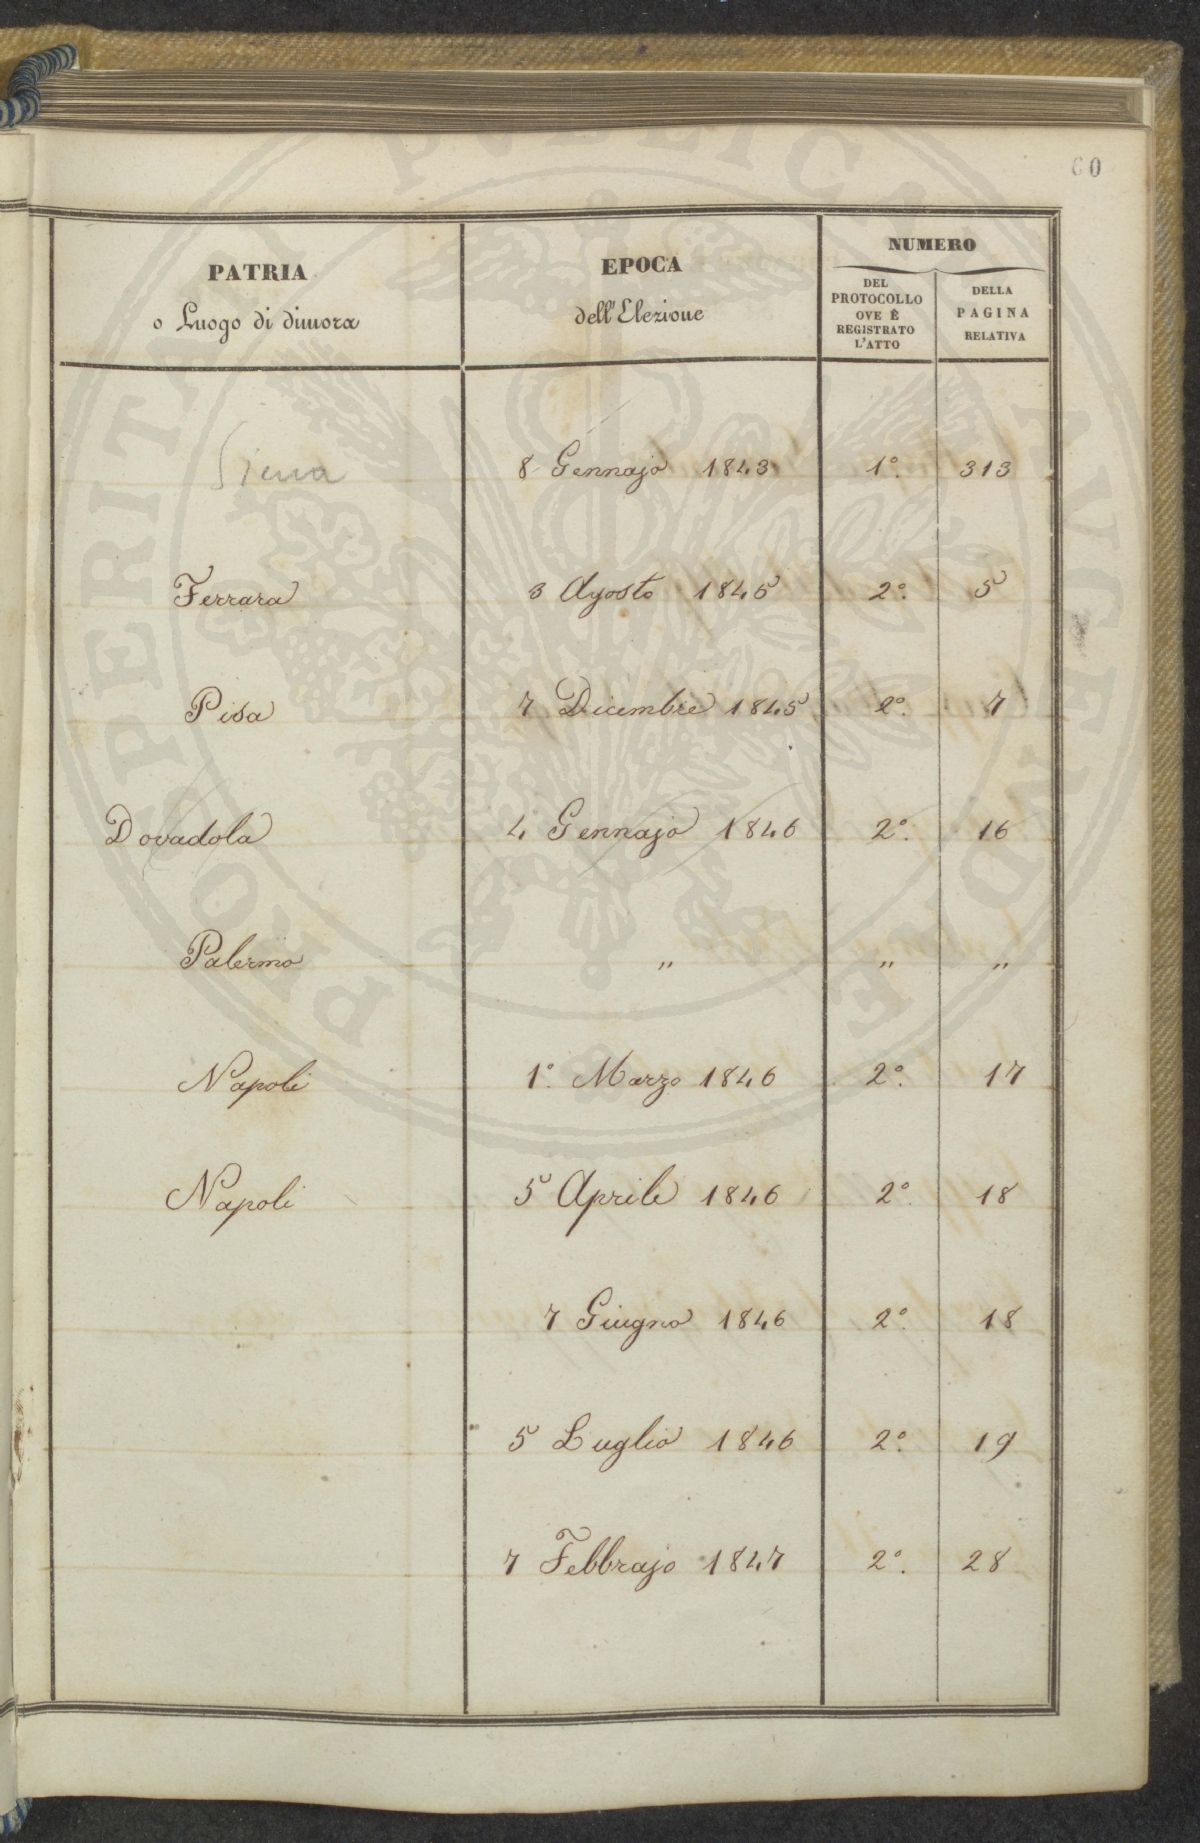 60
PATRIA
o Luogo di dimora
EPOCA
dell'Elezione
NUMERO
DEL
PROTOCOLLO
OVE È
REGISTRATO
L'ATTO
DELLA
PAGINA
RELATIVA
Siena 8 Gennajo 1843 1º. 313
Ferrara 3 Agosto 1845 2º. 5
Pisa 7 Dicembre 1845 2º. 7
Dovadola 4 Gennajo 1846 2º. 16
Palermo " " "
Napoli 1º. Marzo 1846 2º. 17
Napoli 5 Aprile 1846 2º. 18
7 Giugno 1846 2º. 18
5 Luglio 1846 2º. 19
7 Febbrajo 1847 2º. 28